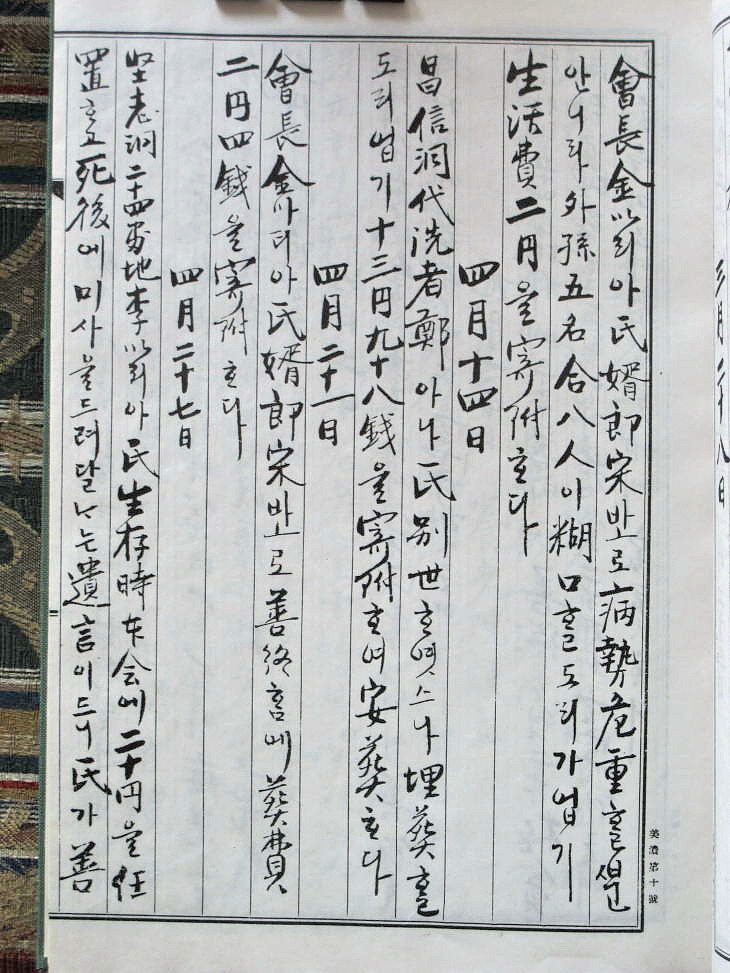 會長金마리아氏婿郞宋바오로病勢危重ᄒᆞᆯᄲᅮᆫ
안니라外孫五名合八人이糊口ᄒᆞᆯ도리가업기
生活費二円을寄附ᄒᆞ다
四月十四日
昌信洞代洗者鄭아나氏別世ᄒᆞ엿스나埋葬ᄒᆞᆯ
도리업기十三円九十八錢을寄附ᄒᆞ여安葬ᄒᆞ다
四月二十一日
會長金마리아氏婿郞宋바오로善終홈에葬費
二円四錢을寄附ᄒᆞ다
四月二十七日
堅志洞二十四番地李마리아氏生存時本会에二十円을任
置ᄒᆞ고死後에미사을드려달나는遺言이드니氏가善
美濃第十號
三月二十八日